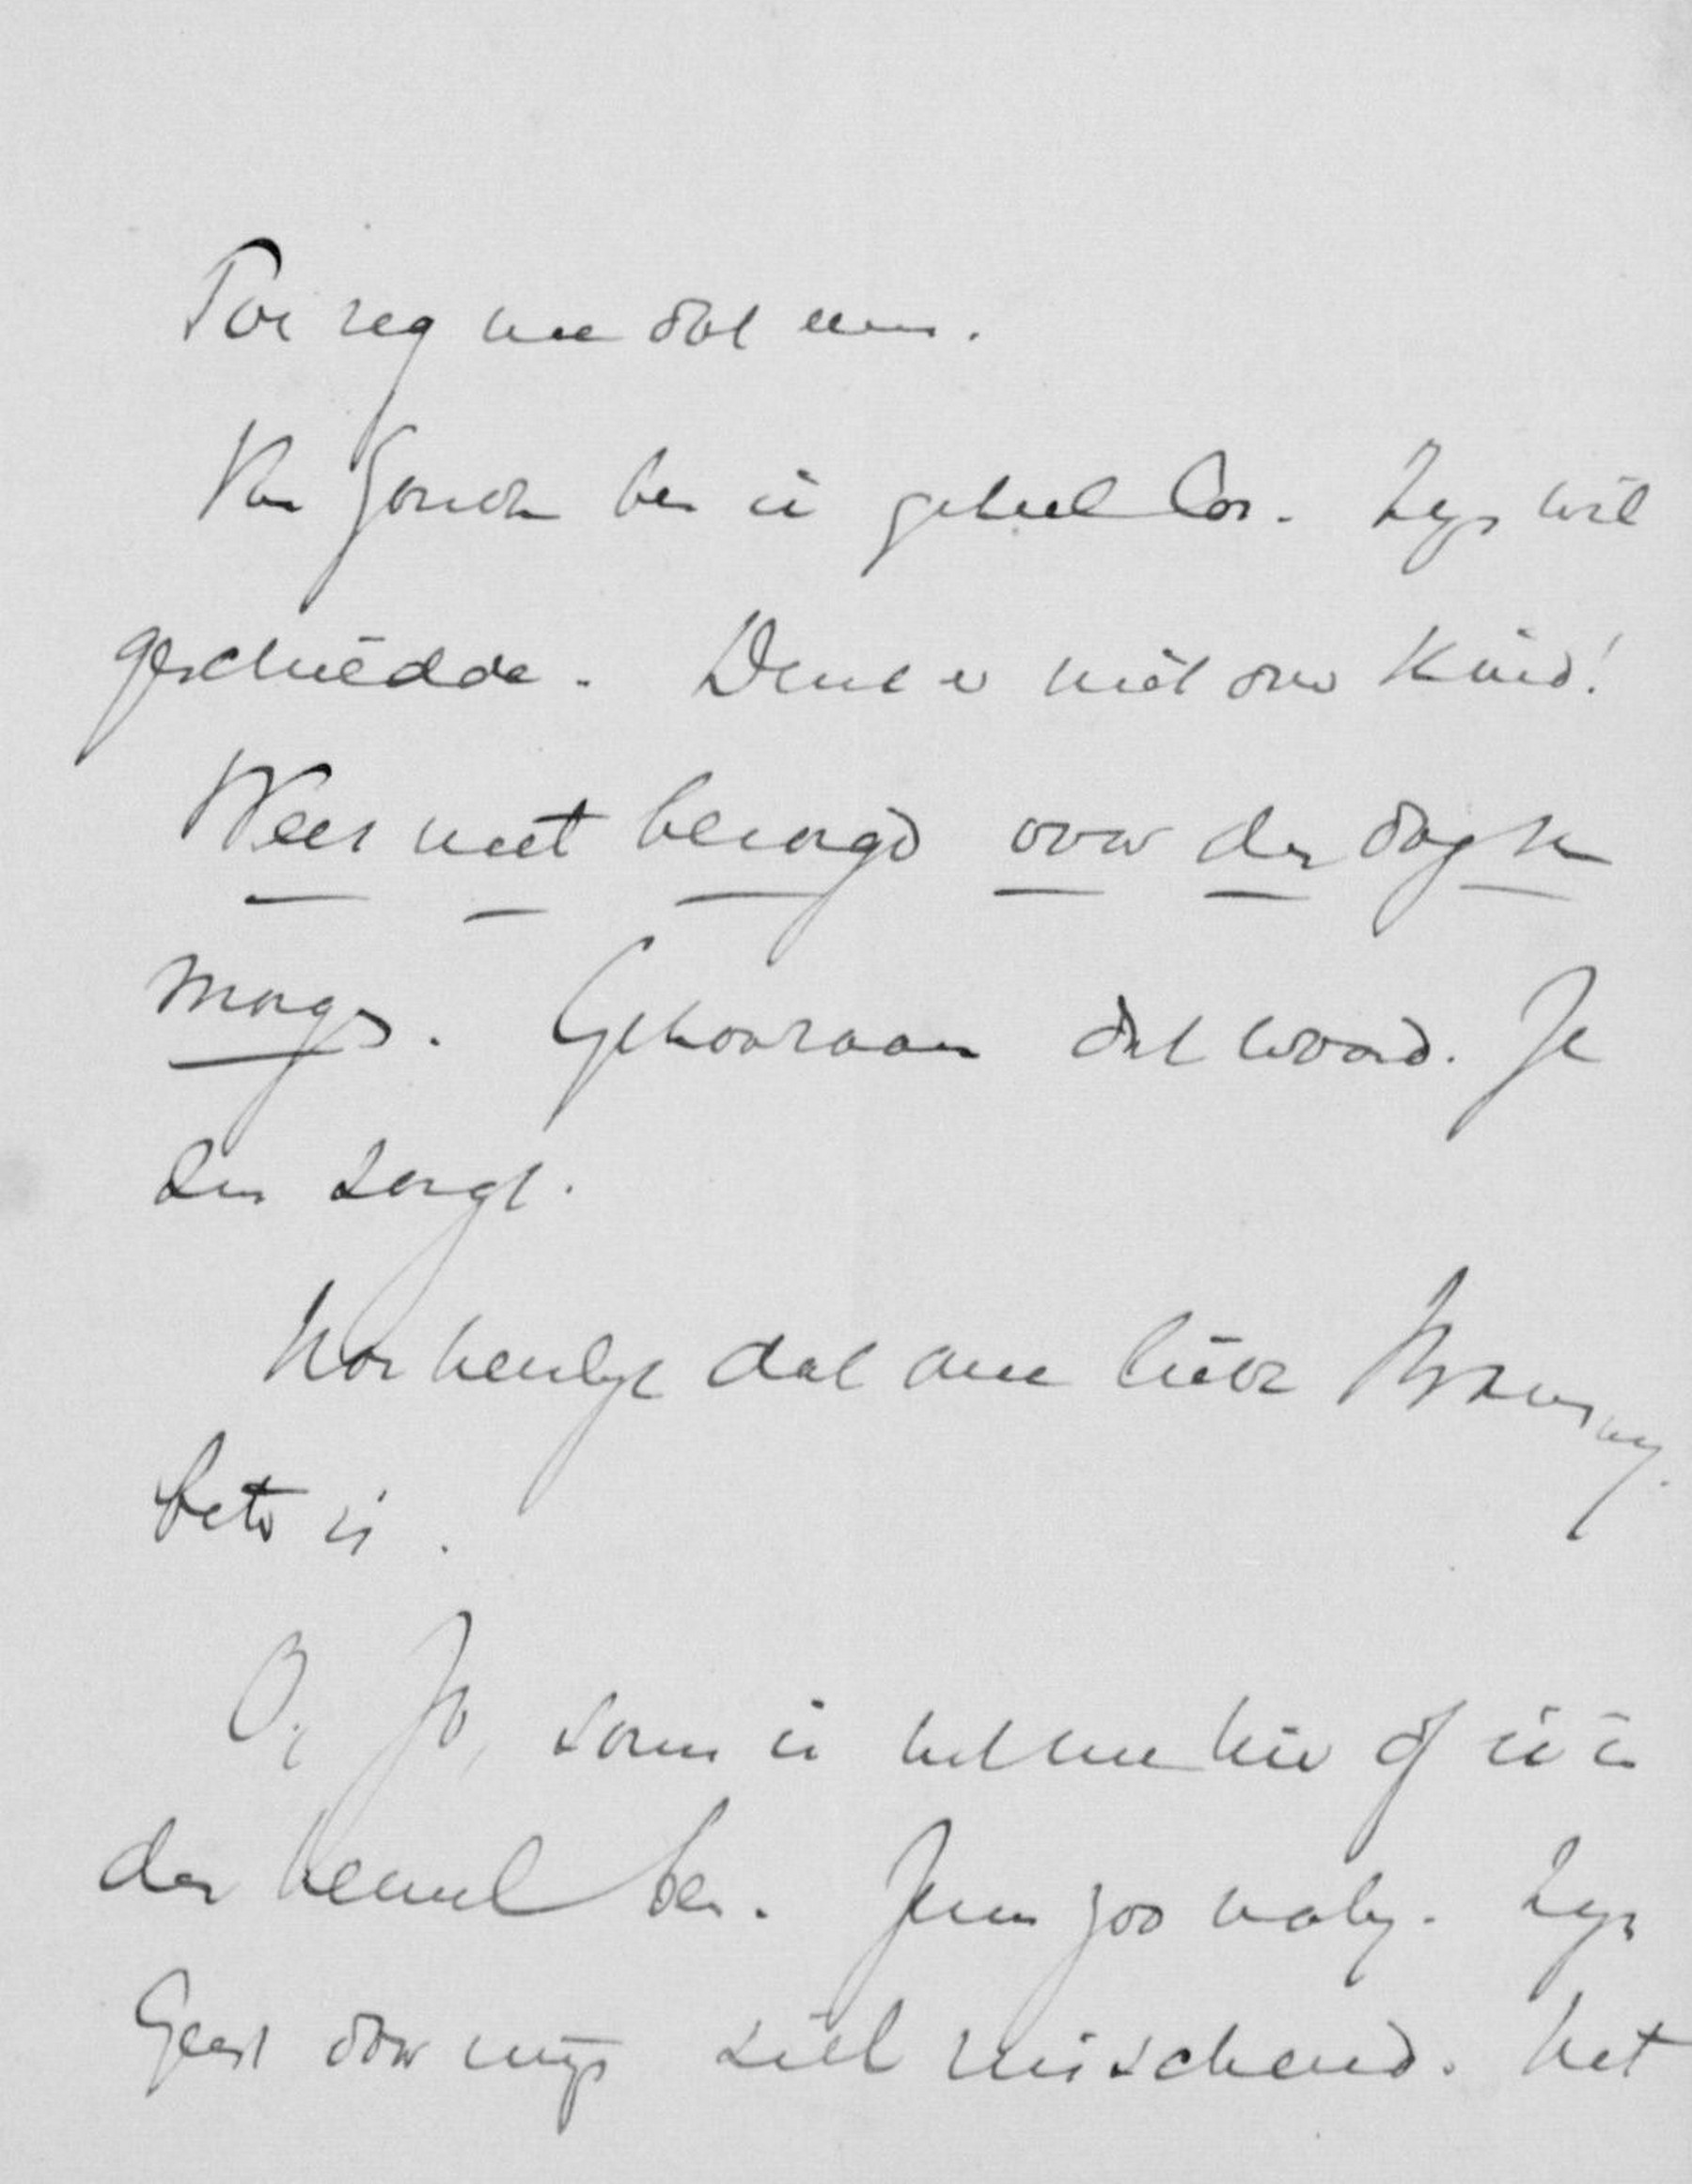 Toe zeg me dat eens.
Van Gouda ben ik geheel los. Zijn wil
geschiedde. Denk er niet over Kind!
Wees niet bezorgd voor den dag van
morgen. Gehoorzaam dat woord. Je
zen zorgt.
Hoe heerlijk dat onze lieve
beter is.
O, Jo, soms is het me hier of ik in
den hemel ben. Jezus zoo nabij. Zijn
Geest door mijn ziel ruischend. Het